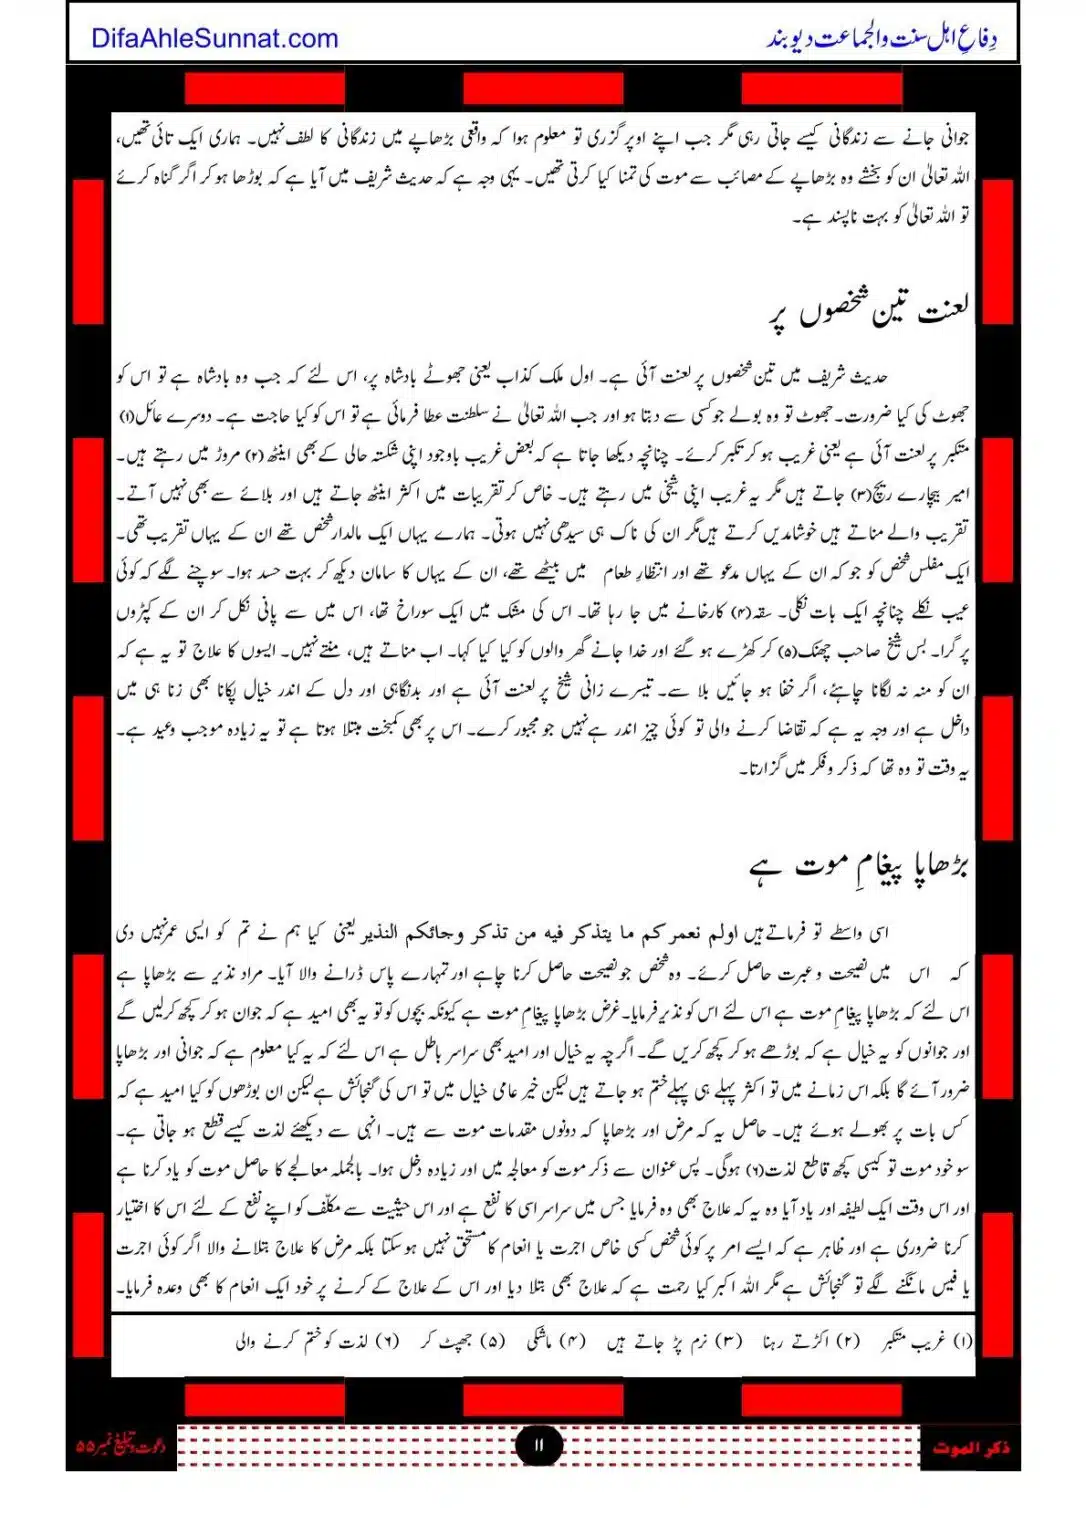 DifaAhleSunnat.com
دِفاعِ اہل سنت والجماعت دیوبند
جوانی جانے سے زندگانی کیسے جاتی رہی مگر جب اپنے اوپر گزری تو معلوم ہوا کہ واقعی بڑھاپے میں زندگانی کا لطف نہیں۔ ہماری ایک تائی تھیں،
اللہ تعالیٰ ان کو بخشے وہ بڑھاپے کے مصائب سے موت کی تمنا کیا کرتی تھیں۔ یہی وجہ ہے کہ حدیث شریف میں آیا ہے کہ بوڑھا ہو کر اگر گناہ کرے
تو اللہ تعالیٰ کو بہت ناپسند ہے۔
لعنت تین شخصوں پر
حدیث شریف میں تین شخصوں پر لعنت آئی ہے۔ اول ملک کذاب یعنی جھوٹے بادشاہ پر، اس لئے کہ جب وہ بادشاہ ہے تو اس کو
جھوٹ کی کیا ضرورت۔ جھوٹ تو وہ بولے جو کسی سے دبتا ہو اور جب اللہ تعالیٰ نے سلطنت عطا فرمائی ہے تو اس کو کیا حاجت ہے۔ دوسرے عائل(۱)
متکبر پر لعنت آئی ہے یعنی غریب ہو کر تکبر کرئے۔ چنانچہ دیکھا جاتا ہے کہ بعض غریب باوجود اپنی شکستہ حالی کے بھی اینٹھ (۲) مروڑ میں رہتے ہیں۔
امیر بیچارے ریچ(۳) جاتے ہیں مگر یہ غریب اپنی شیخی میں رہتے ہیں۔ خاص کر تقریبات میں اکثر اینٹھ جاتے ہیں اور بلائے سے بھی نہیں آتے۔
تقریب والے مناتے ہیں خوشامدیں کرتے ہیں مگر ان کی ناک ہی سیدھی نہیں ہوتی۔ ہمارے یہاں ایک مالدار شخص تھے ان کے یہاں تقریب تھی۔
ایک مفلس شخص کو جو کہ ان کے یہاں مدعو تھے اور انتظارِ طعام میں بیٹھے تھے، ان کے یہاں کا سامان دیکھ کر بہت حسد ہوا۔ سوچنے لگے کہ کوئی
عیب نکلے چنانچہ ایک بات نکلی۔ سقہ(۴) کارخانے میں جا رہا تھا۔ اس کی مشک میں ایک سوراخ تھا، اس میں سے پانی نکل کر ان کے کپڑوں
پر گرا۔ بس شیخ صاحب جھٹک(۵) کر کھڑے ہو گئے اور خدا جانے گھر والوں کو کیا کیا کہا۔ اب مناتے ہیں، منتے نہیں۔ ایسوں کا علاج تو یہ ہے کہ
ان کو منہ نہ لگانا چاہئے، اگر خفا ہو جائیں بلا سے۔ تیسرے زانی شیخ پر لعنت آئی ہے اور بدنگاہی اور دل کے اندر خیال پکانا بھی زنا ہی میں
داخل ہے اور وجہ یہ ہے کہ تقاضا کرنے والی تو کوئی چیز اندر ہے نہیں جو مجبور کرے۔ اس پر بھی کمبخت مبتلا ہوتا ہے تو یہ زیادہ موجب وعید ہے۔
یہ وقت تو وہ تھا کہ ذکر و فکر میں گزارتا۔
بڑھاپا پیغامِ موت ہے
اسی واسطے تو فرماتے ہیں اولم نعمرکم ما یتذکر فیہ من تذکر وجائکم النذیر یعنی کیا ہم نے تم کو ایسی عمر نہیں دی
کہ اس میں نصیحت و عبرت حاصل کرئے۔ وہ شخص جو نصیحت حاصل کرنا چاہے اور تمہارے پاس ڈرانے والا آیا۔ مراد نذیر سے بڑھاپا ہے
اس لئے کہ بڑھاپا پیغامِ موت ہے اس لئے اس کو نذیر فرمایا۔ غرض بڑھاپا پیغامِ موت ہے کیونکہ بچوں کو تو یہ بھی امید ہے کہ جوان ہو کر کچھ کرلیں گے
اور جوانوں کو یہ خیال ہے کہ بوڑھے ہو کر کچھ کریں گے۔ اگرچہ یہ خیال اور امید بھی سراسر باطل ہے اس لئے کہ یہ کیا معلوم ہے کہ جوانی اور بڑھاپا
ضرور آئے گا بلکہ اس زمانے میں تو اکثر پہلے ہی پہلے ختم ہو جاتے ہیں لیکن خیر عامی خیال میں تو اس کی گنجائش ہے لیکن ان بوڑھوں کو کیا امید ہے کہ
کس بات پر بھولے ہوئے ہیں۔ حاصل یہ کہ مرض اور بڑھاپا کہ دونوں مقدمات موت سے ہیں۔ انہی سے دیکھئے لذت کیسے قطع ہو جاتی ہے۔
سو خود موت تو کیسی کچھ قاطع لذت(۶) ہوگی۔ پس عنوان سے ذکر موت کو معالجہ میں اور زیادہ دخل ہوا۔ بالجملہ معالجے کا حاصل موت کو یاد کرنا ہے
اور اس وقت ایک لطیفہ اور یاد آیا وہ یہ کہ علاج بھی وہ فرمایا جس میں سراسر اسی کا نفع ہے اور اس حیثیت سے مکلّف کو اپنے نفع کے لئے اس کا اختیار
کرنا ضروری ہے اور ظاہر ہے کہ ایسے امر پر کوئی شخص کسی خاص اجرت یا انعام کا مستحق نہیں ہو سکتا بلکہ مرض کا علاج بتلانے والا اگر کوئی اجرت
یا فیس مانگنے لگے تو گنجائش ہے مگر اللہ اکبر کیا رحمت ہے کہ علاج بھی بتلا دیا اور اس کے علاج کے کرنے پر خود ایک انعام کا بھی وعدہ فرمایا۔
(۱) غریب متکبر (۲) اکڑتے رہنا (۳) نرم پڑ جاتے ہیں (۴) ماشکی (۵) جھپٹ کر (۶) لذت کو ختم کرنے والی
ذکر الموت
۱۱
دعوت و تبلیغ نمبر ۵۵